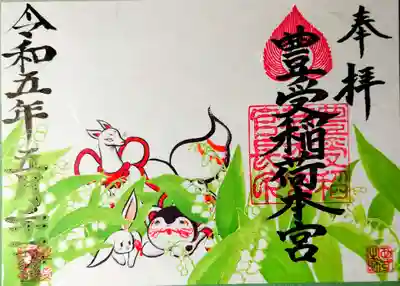 奉拝
豊受稲荷本宮
令和五年五月